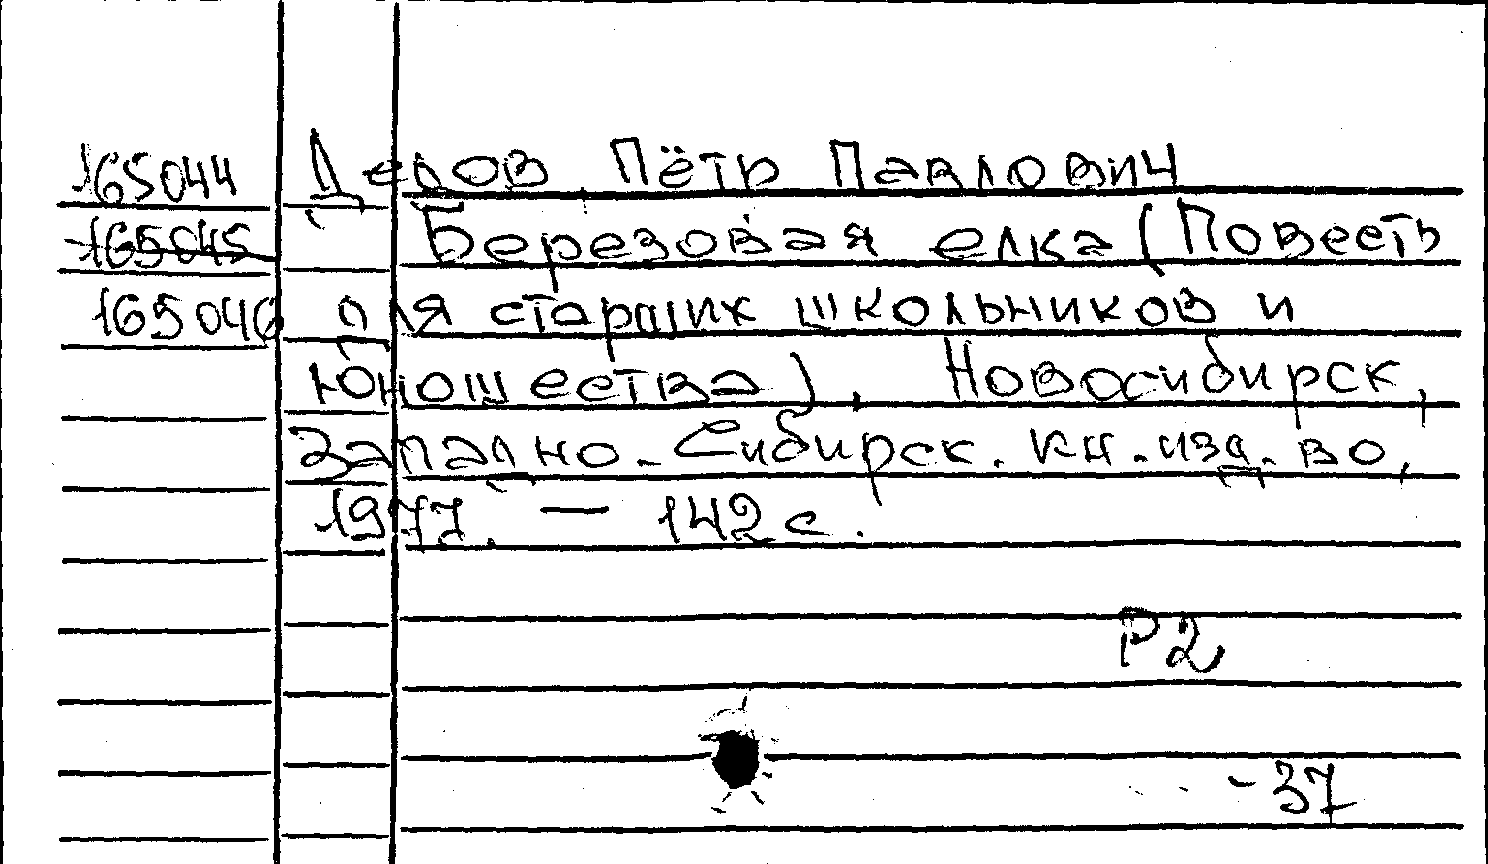 165044 Дедов Пётр Павлович
165045 Березовая елка (Повесть
165046 для старших школьников и
юношества). Новосибирск,
Западно-Сибирск. кн.-изд-во,
1977. — 142 с.
Р2
-37